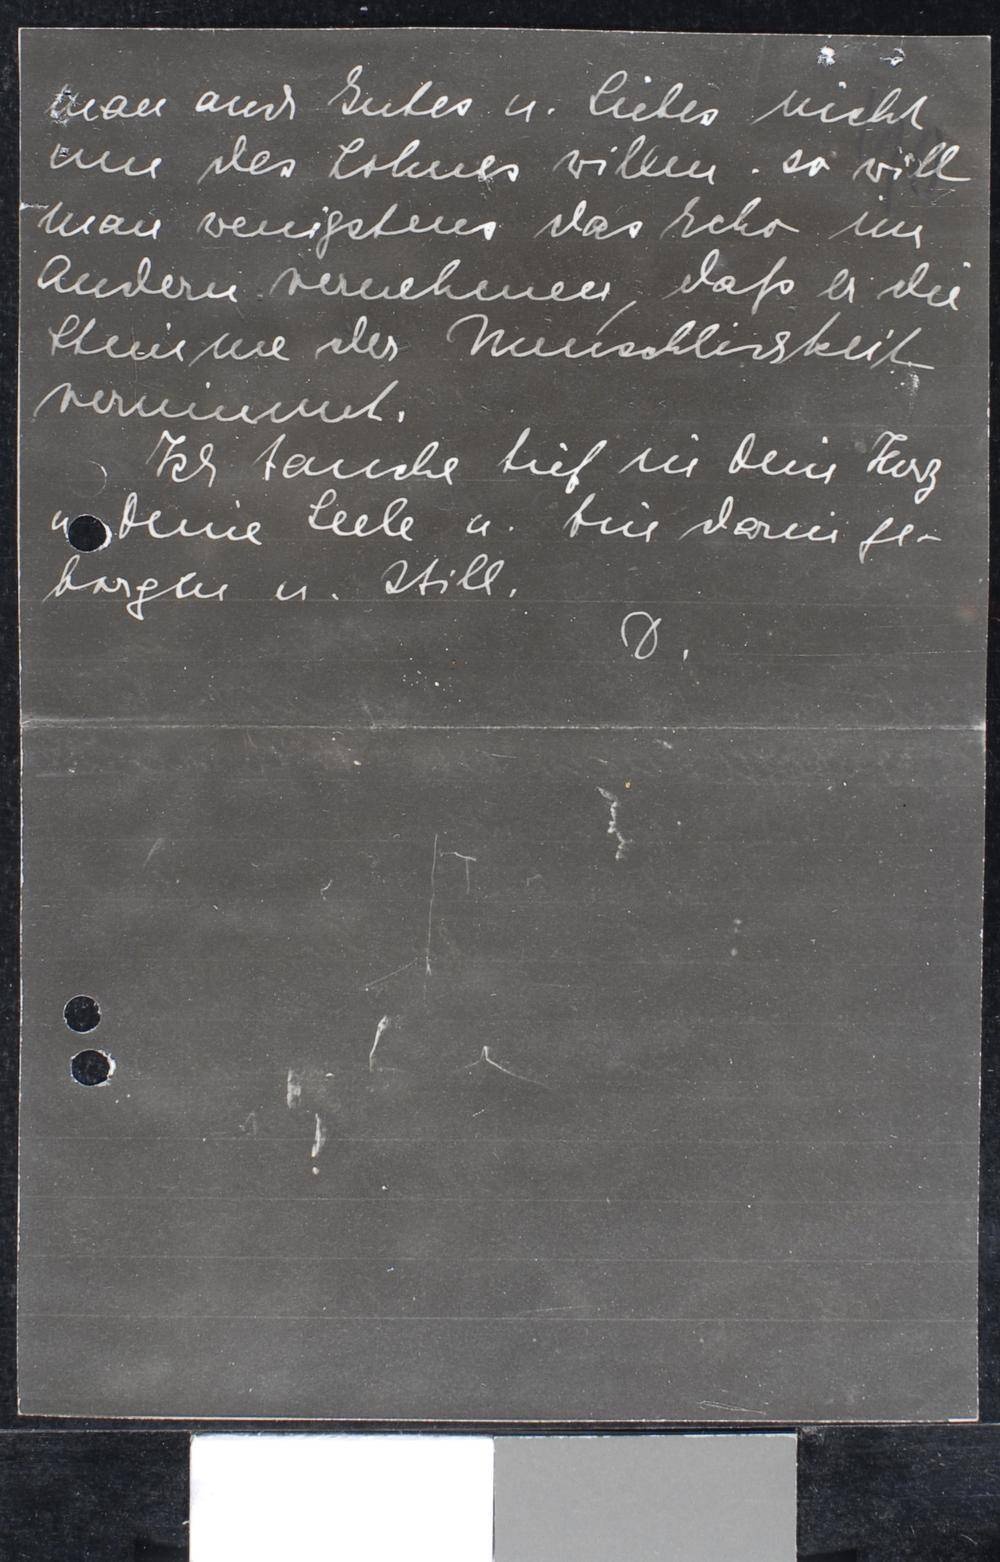 man auch Gutes u. Liebes nicht
um des Lohnes willen. so will
man wenigstens das Echo im
Andern vernehmen, daß er die
Stimme der Menschlichkeit
vernimmt.
Ich tauche tief in Dein Herz
u. Deine Seele u. bin darin ge-
borgen u. still.
D.